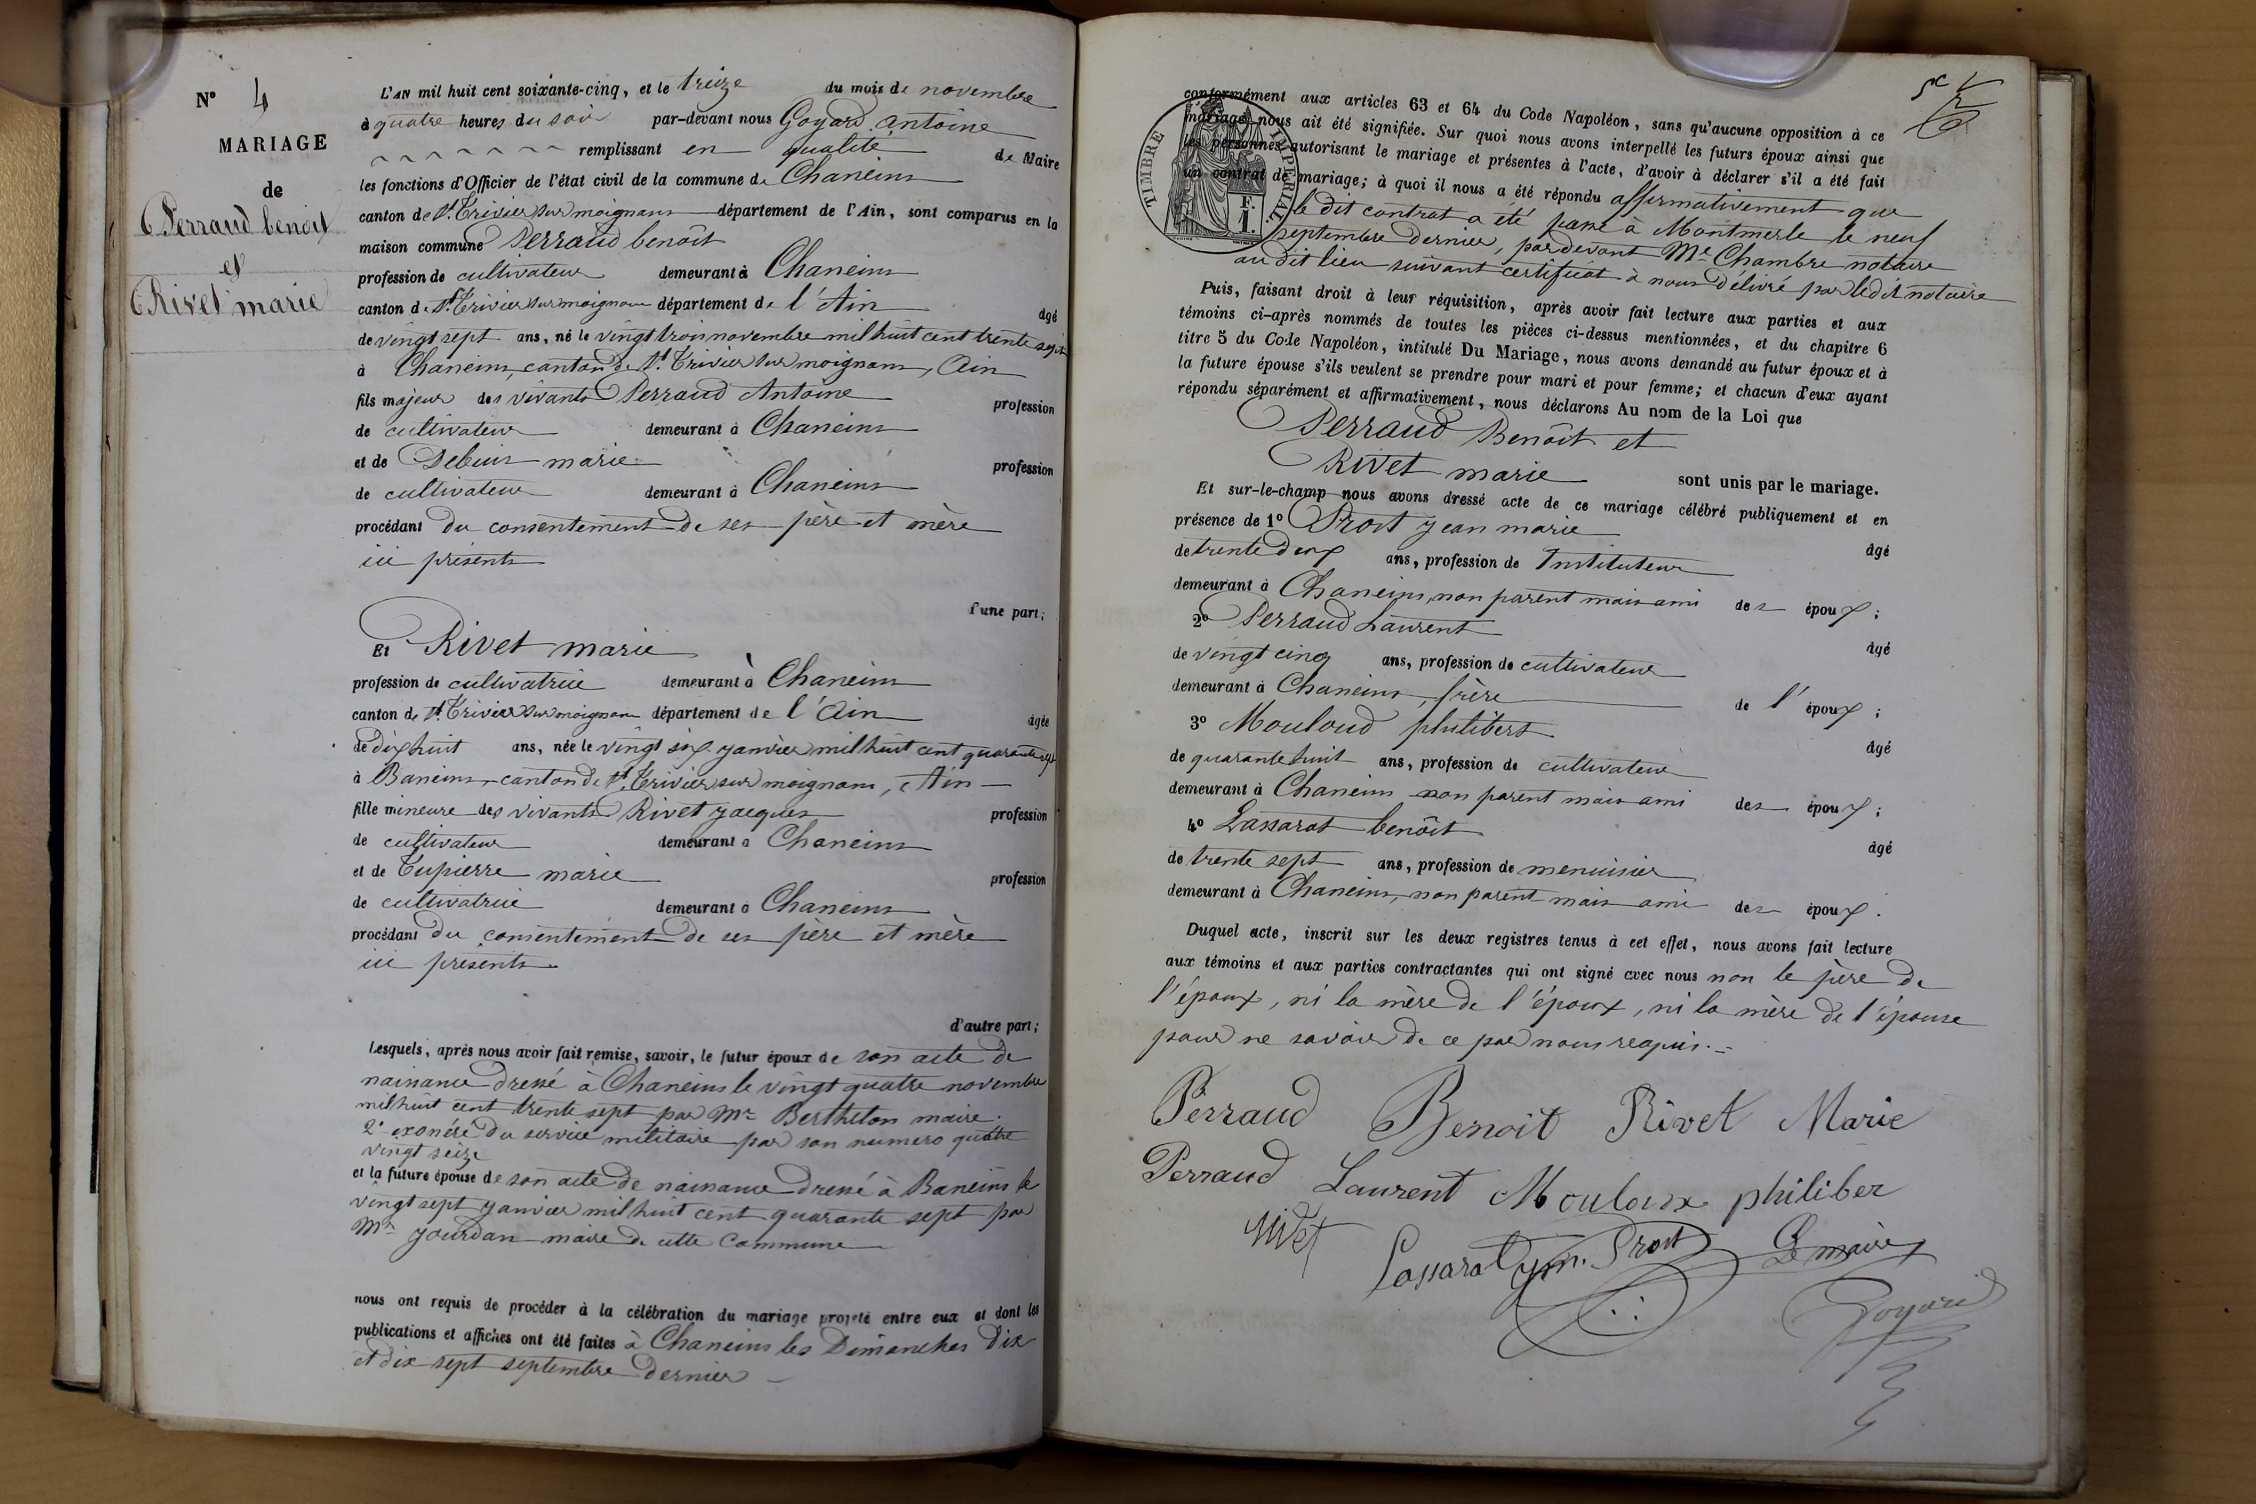 N° 4
MARIAGE
de
Perraud benoît
et
Rivet marie
L'AN mil huit cent soixante-cinq, et le treize du mois de novembre
à quatre heures du soir par-devant nous Goyard Antoine
remplissant en qualité de Maire
les fonctions d'Officier de l'état civil de la commune de Chaneins
canton de St. Trivier sur moignans département de l'Ain, sont comparus en la
maison commune Perraud benoît
profession de cultivateur demeurant à Chaneins
canton de St. Trivier sur moignans département de l'Ain âgé
de vingt sept ans, né le vingt trois novembre mil huit cent trente sept
à Chaneins, canton de St. Trivier sur moignans, Ain
fils majeur des vivants Perraud Antoine profession
de cultivateur demeurant à Chaneins
et de marie profession
de cultivateur demeurant à Chaneins
procédant du consentement de ses père et mère
ici présents
d'une part;
Et Rivet marie
profession de cultivatrice demeurant à Chaneins
canton de St. Trivier sur moignans département de l'Ain âgée
de dix huit ans, née le vingt six janvier mil huit cent quarante sept
à Baneins, canton de St. Trivier sur moignans, Ain
fille mineure des vivants Rivet jacques profession
de cultivateur demeurant à Chaneins
et de Tupierre marie profession
de cultivatrice demeurant à Chaneins
procédant du consentement de ses père et mère
ici présents
d'autre part;
Lesquels, après nous avoir fait remise, savoir, le futur époux de son acte de
naissance dressé à Chaneins le vingt quatre novembre
mil huit cent trente sept par Mr Berthelon maire.
2° exonéré du service militaire par son numero quatre
vingt seize
et la future épouse de son acte de naissance dressé à Baneins le
vingt sept janvier mil huit cent quarante sept par
Mr jourdan maire de cette Commune
nous ont requis de procéder à la célébration du mariage projeté entre eux et dont les
publications et affiches ont été faites à Chaneins les Dimanches dix
et dix sept septembre dernier
conformément aux articles 63 et 64 du Code Napoléon, sans qu'aucune opposition à ce
mariage nous ait été signifiée. Sur quoi nous avons interpellé les futurs époux ainsi que
les personnes autorisant le mariage et présentes à l'acte, d'avoir à déclarer s'il a été fait
un contrat de mariage; à quoi il nous a été répondu affirmativement que
le dit contrat a été passé à Montmerle le neuf
septembre dernier, par devant Me Chambre notaire
au dit lieu suivant certificat à nous délivré par ledit notaire
TIMBRE IMPERIAL.
1 F.
Puis, faisant droit à leur réquisition, après avoir fait lecture aux parties et aux
témoins ci-après nommés de toutes les pièces ci-dessus mentionnées, et du chapitre 6
titre 5 du Code Napoléon, intitulé Du Mariage, nous avons demandé au futur époux et à
la future épouse s'ils veulent se prendre pour mari et pour femme; et chacun d'eux ayant
répondu séparément et affirmativement, nous déclarons Au nom de la Loi que
Perraud Benoît et
Rivet marie sont unis par le mariage.
Et sur-le-champ nous avons dressé acte de ce mariage célébré publiquement et en
présence de 1° Prost jean marie âgé
de trente deux ans, profession de Instituteur
demeurant à Chaneins, non parent mais ami des époux;
2° Perraud Laurent âgé
de vingt cinq ans, profession de cultivateur
demeurant à Chaneins, frère de l'époux;
3° Mouloud philibert âgé
de quarante huit ans, profession de cultivateur
demeurant à Chaneins non parent mais ami des époux;
4° Lassarat benoît âgé
de trente sept ans, profession de menuisier
demeurant à Chaneins, non parent mais ami des époux.
Duquel acte, inscrit sur les deux registres tenus à cet effet, nous avons fait lecture
aux témoins et aux parties contractantes qui ont signé avec nous non le père de
l'époux, ni la mère de l'époux, ni la mère de l'épouse
pour ne savoir de ce par nous requis.
Perraud Benoit Rivet Marie
Perraud Laurent Mouloux philiber
rivet
Lassarat jm. Prost Le maire
Goyard